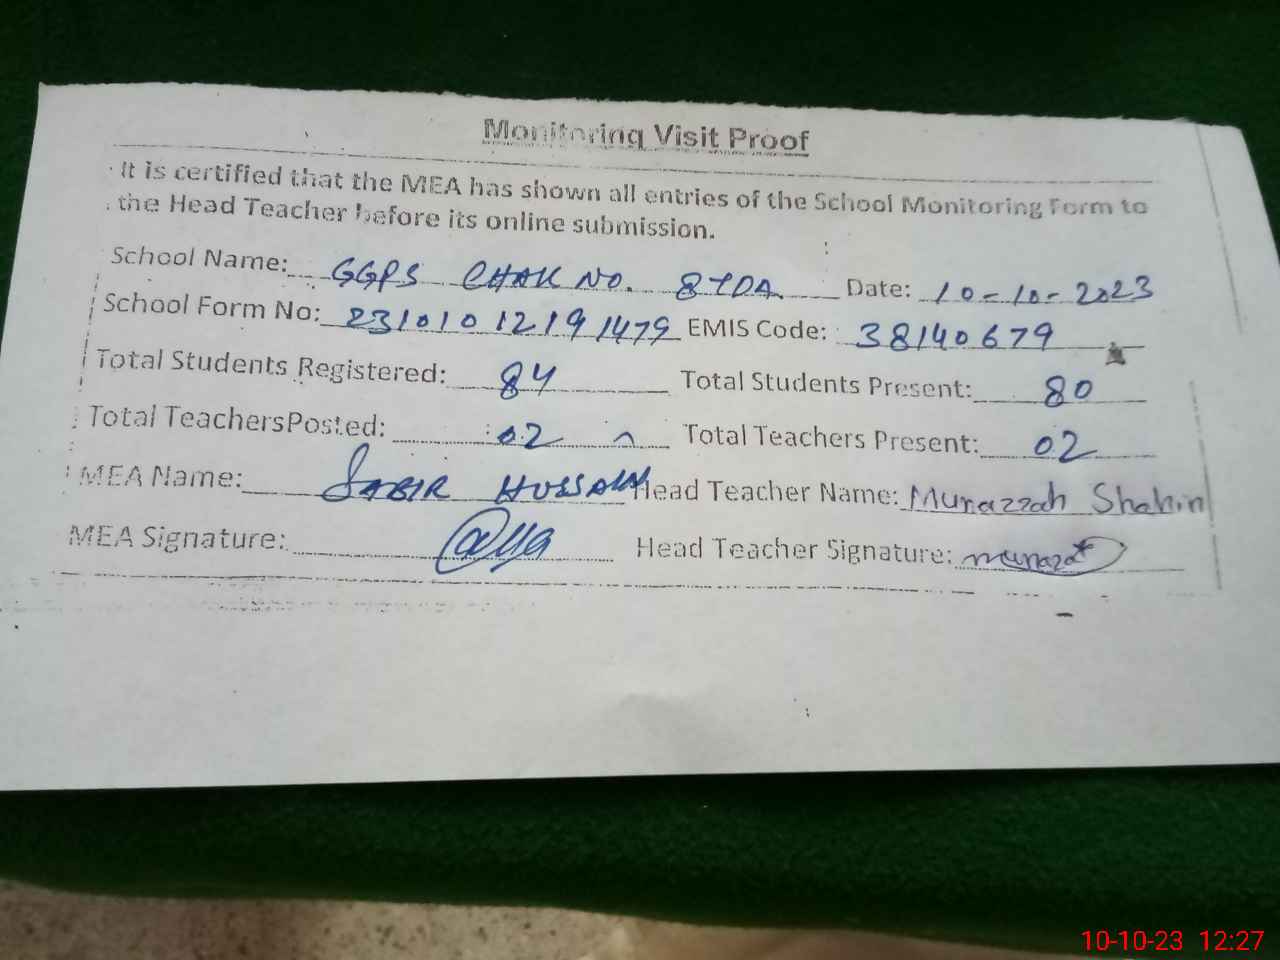 Monitoring Visit Proof
It is certified that the MEA has shown all entries of the School Monitoring Form to
the Head Teacher before its online submission.
School Name: GGPS CHAK NO. 87DA Date: 10-10-2023
School Form No: 2310101219 1479 EMIS Code: 38140679
Total Students Registered: 84 Total Students Present: 80
Total TeachersPosted: 02 Total Teachers Present: 02
MEA Name: SABIR HUSSAIN Head Teacher Name: Munazzah Shahin
MEA Signature: Head Teacher Signature: munaza
10-10-23 12:27